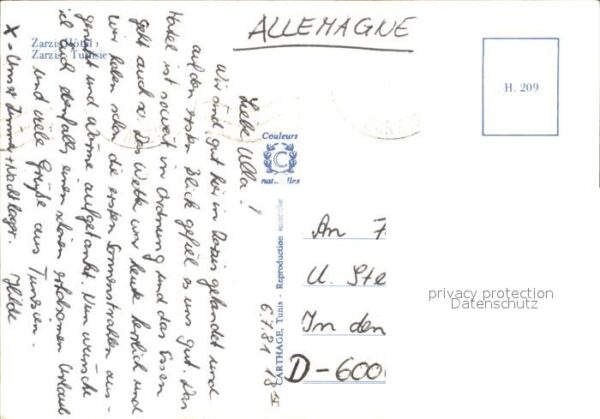 ALLEMAGNE
Zarzis Hôtel
Zarzis - Tunisie
H. 209
Couleurs
C
nat lles
CARTHAGE, Tunis - Reproduction interdite
6.7.81 18
Liebe Ulla!
Wir sind gut hier in Zarzis gelandet und
auf den ersten Blick gefiel es uns gut. Das
Hotel ist soweit in Ordnung und das Essen
geht auch so. Das Wetter war heute herrlich und
wir haben schon die ersten Sonnenstrahlen aus-
genutzt und Wärme aufgetankt. Nun wünsche
ich Euch ebenfalls einen schönen erholsamen Urlaub
und viele Grüße aus Tunesien.
X = Unser Zimmer + Nachtlager. Hilde
An F
U. Ste
In den
D-600
privacy protection
Datenschutz